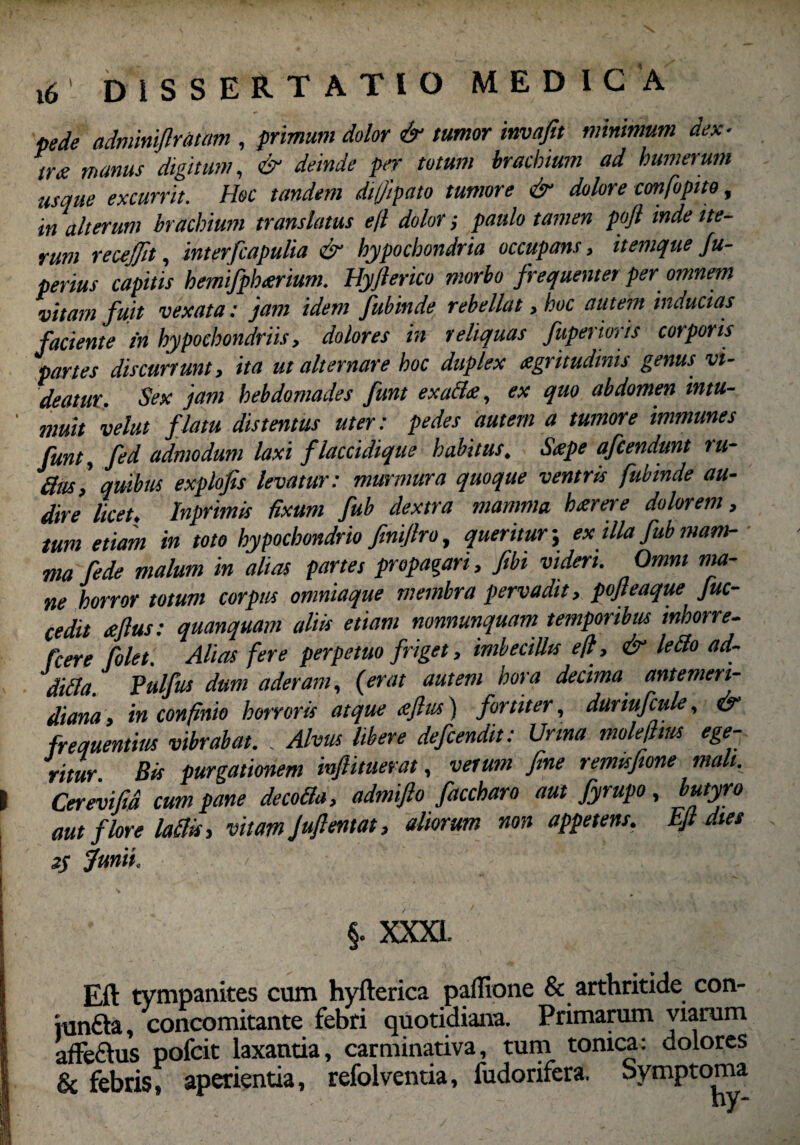 16 DISSERTATIO MEDICA
pede adminiſtratam , primum dolor & tumor invaſit minimum dex-
træ manus digitum, & deinde per totum brachium ad humerum
usque excurrit. Hoc tandem diſſipato tumore & dolore conſopito ,
in alterum brachium translatus eſt dolor; paulo tamen poſt inde ite-
rum receſſit, interſcapulia & hypochondria occupans, itemque ſu-
perius capitis hemiſphærium. Hyſterico morbo frequenter per omnem
vitam fuit vexata: jam idem ſubinde rebellat, hoc autem inducias
faciente in hypochondriis, dolores in reliquas ſuperioris corporis
partes discurrunt, ita ut alternare hoc duplex ægritudinis genus vi-
deatur. Sex jam hebdomades ſunt exactæ, ex quo abdomen intu-
muit velut flatu distentus uter: pedes autem a tumore immunes
ſunt, ſed admodum laxi flaccidique habitus. Sæpe aſcendunt ru-
ctus, quibus exploſis levatur: murmura quoque ventris ſubinde au-
dire licet. Inprimis fixum ſub dextra mamma hærere dolorem,
tum etiam in toto hypochondrio ſiniſtro, queritur; ex illa ſub mam-
ma ſede malum in alias partes propagari, ſibi videri. Omni ma-
ne horror totum corpus omniaque membra pervadit, poſteaque ſuc-
cedit æſtus: quanquam aliis etiam nonnunquam temporibus inhorre-
ſcere ſolet. Alias fere perpetuo friget, imbecillis eſt, & lecto ad-
dicta. Pulſus dum aderam, (erat autem hora decima antemeri-
diana, in confinio horroris atque æſtus) fortiter, duriuſcule, &
frequentius vibrabat. Alvus libere deſcendit: Urina moleſtius ege-
ritur. Bis purgationem inſtituerat, verum ſine remisſione mali.
Cereviſiâ cum pane decocta, admiſto ſaccharo aut ſyrupo, butyro
aut flore lactis, vitam ſuſtentat, aliorum non appetens. Eſt dies
25 Junii.
§. XXXI.
Eſt tympanites cum hyſterica paſſione & arthritide con-
juncta, concomitante febri quotidiana. Primarum viarum
affectus poſcit laxantia, carminativa, tum tonica: dolores
& febris, aperientia, reſolventia, ſudorifera. Symptoma
hy-